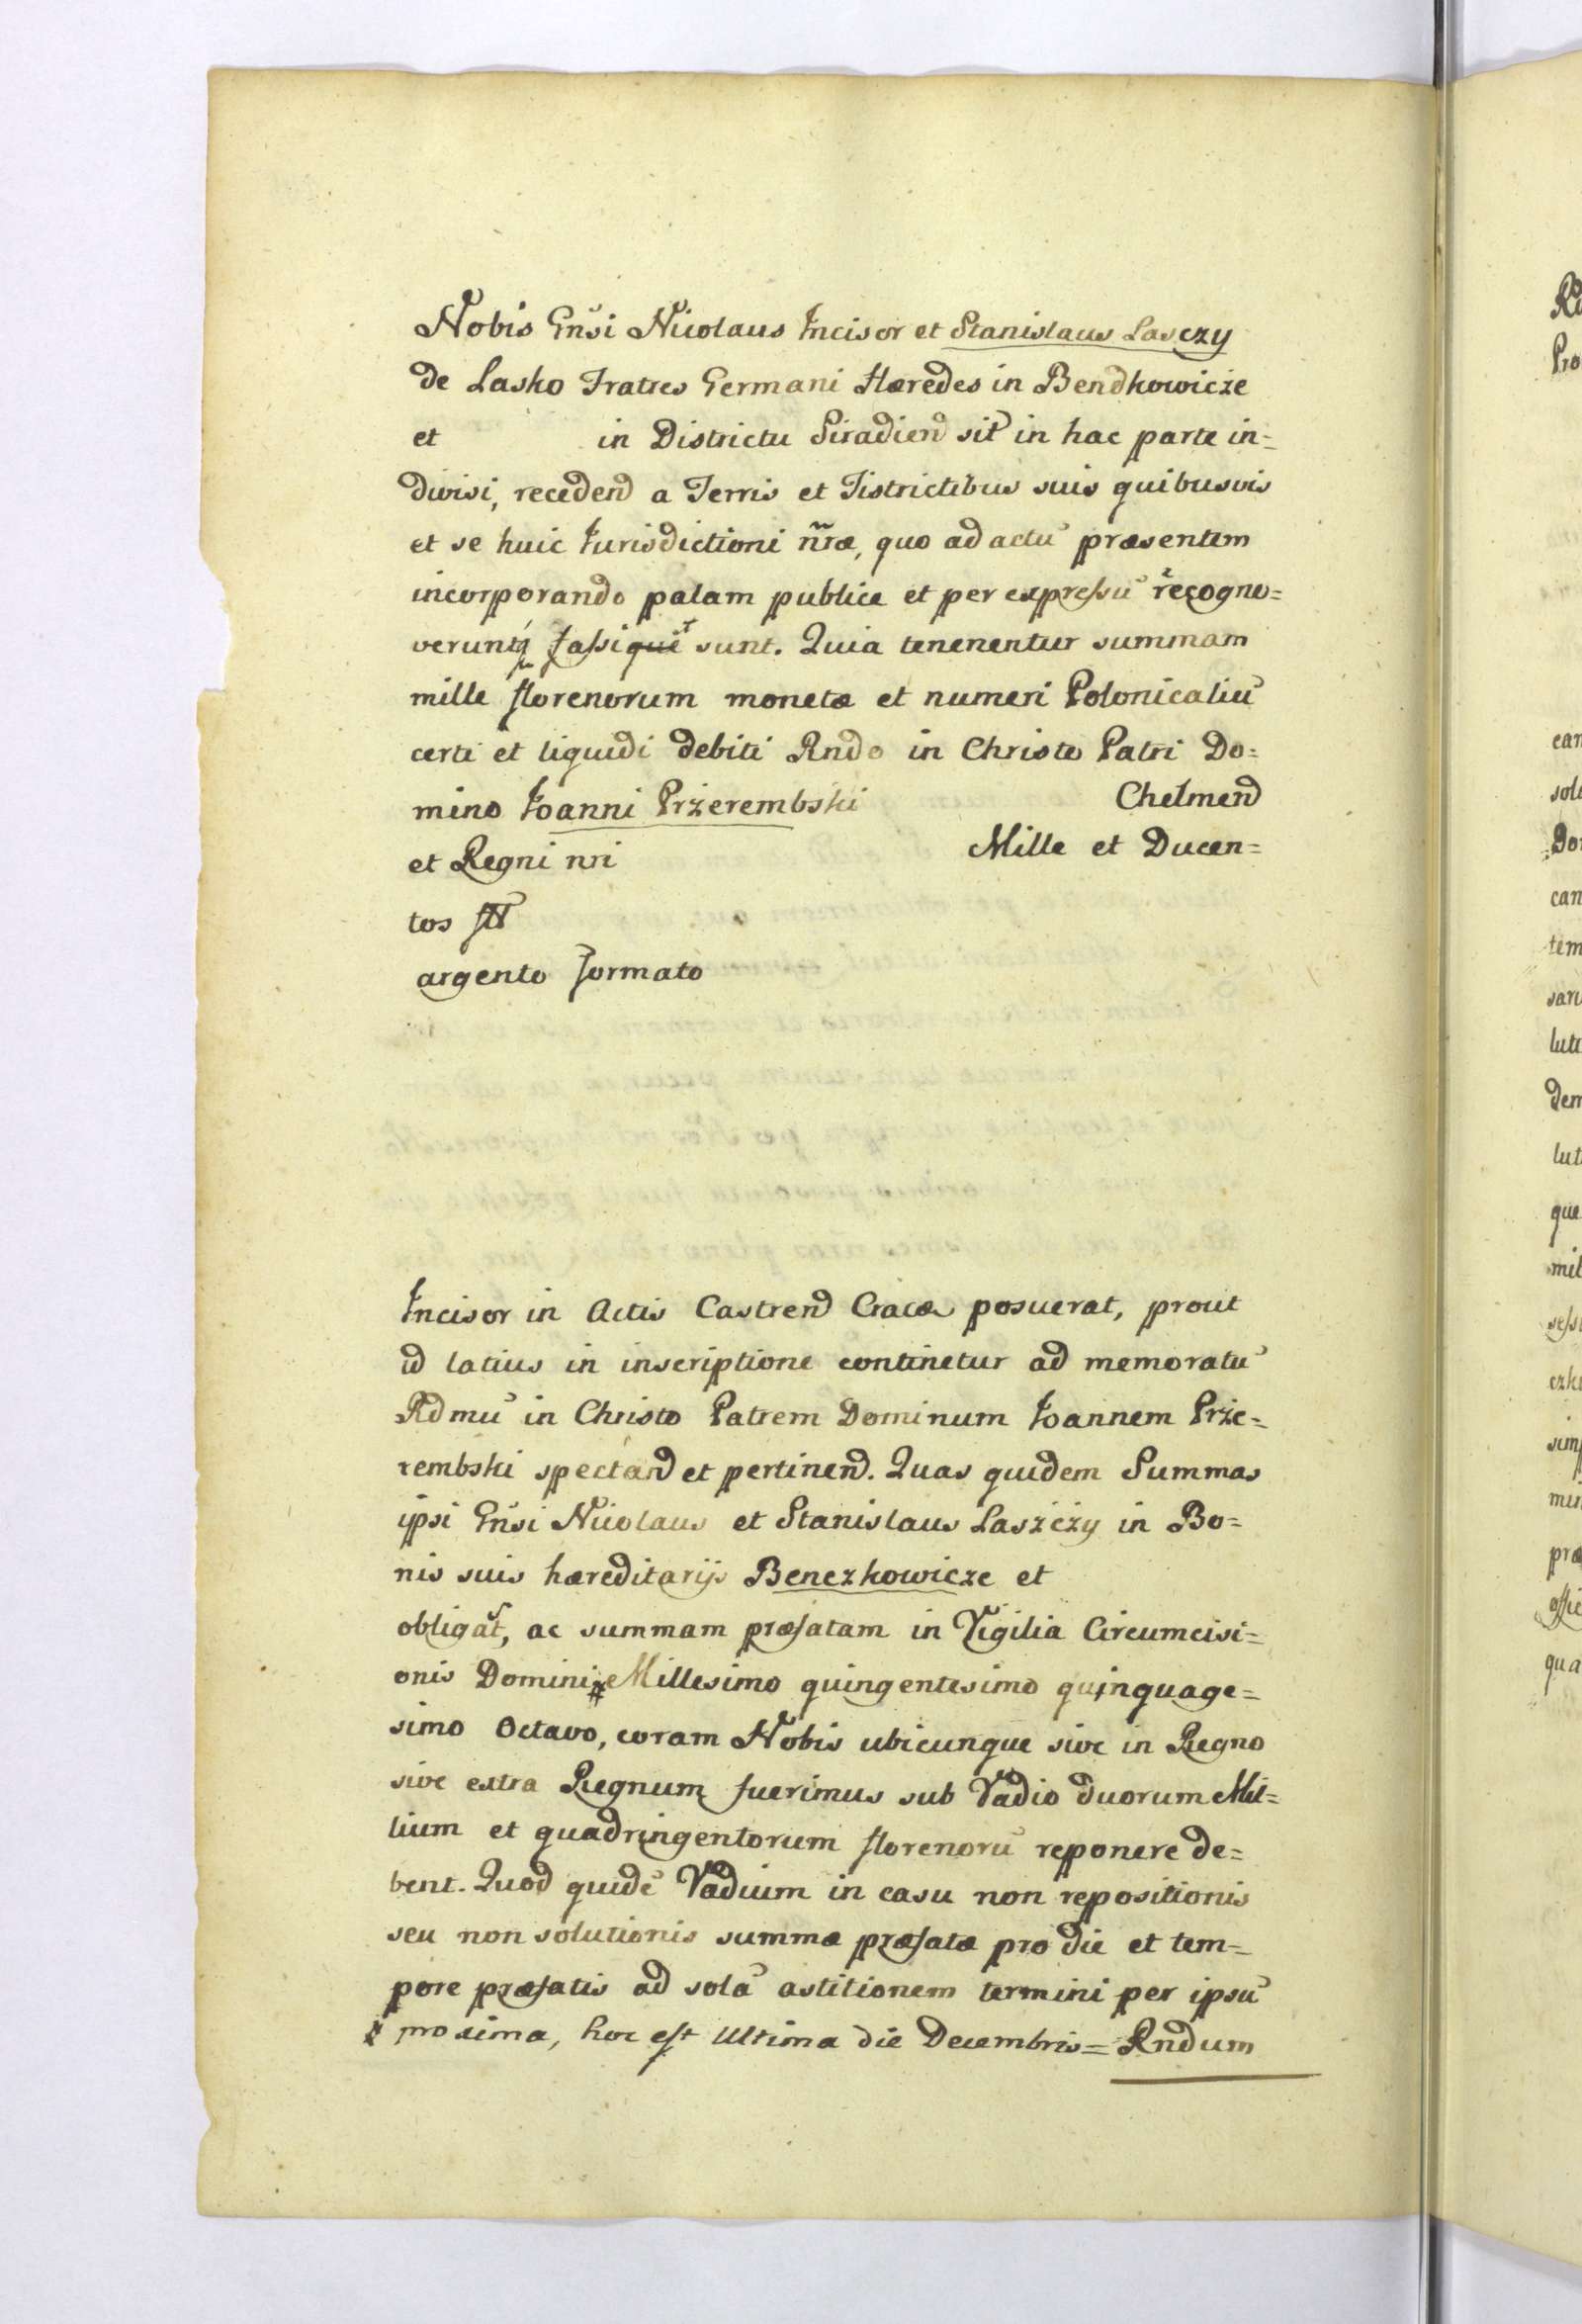 Nobis Gnsi Nicolaus Incisor et Stanislaus Lasczy
de Lasko Fratres Germani Hæredes in Bendkowicże
et in Districtu Siradien sit in hac parte in=
divisi, receden a Terris et Tistrictibus suis quibusvis
et se huic Iurisdictioni nræ, quo ad actu præsentem
incorporando palam publice et per expressu recogno=
verunt fassi sunt. Quia tenenentur summam
mille florenorum monetæ et numeri Polonicaliu
certi et liquidi debiti Rndo in Christo Patri Do=
mino Ioanni Prżerembski Chełmen
et Regni nri Mille et Ducen=
tos fl
argento formato
Incisor in Actis Castren Cracæ posuerat, prout
id latius in inscriptione continetur ad memoratu
Rdmu in Christo Patrem Dominum Ioannem Prże=
rembski spectan et pertinen. Quas quidem Summas
ipsi Gnsi Nicolaus et Stanislaus Laszczy in Bo=
nis suis hæreditarijs Benezkowicze et
obligat, ac summam præfatam in Vigilia Circumcisi=
onis Domini # Millesimo quingentesimo quinquage=
simo Octavo, coram Nobis ubicunque sive in Regno
sive extra Regnum fuerimus sub Vadio duorum Mil=
lium et quadringentorum florenoru reponere de=
bent. Quod quide Vadium in casu non repositionis
seu non solutionis summæ præfatæ pro die et tem=
pore præfatis ad sola astitionem termini per ipsu
# proxima, hoc est Ultima die Decembris= Rndum
Pro
can
tem